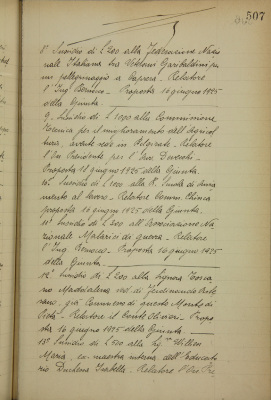 507
8° Sussidio di L 200 alla Federazione Nazio
nale Italiana tra Vittime Garibaldini per
un pellegrinaggio a Caprera - Relatore
l'Ing. - Proposta 16 giugno 1925
della Giunta.
9. Sussidio di L 1000 alla Commissione
per il miglioramento dell'Agricol
tura, avente sede in Belgrado. Relatore
l'On Presidente per l'Avv.
Proposta 18 giugno 1925 della Giunta.
10° Sussidio di L 1000 alla R. Scuola di Avvia
mento al lavoro - Relatore Comm. Chinca
proposta 16 giugno 1925 della Giunta.
11° Sussidio di L 200 all'Associazione Na
zionale Malarici di guerra - Relatore
l'Ing. - Proposta 16 giugno 1925
della Giunta
12° Sussidio di L 200 alla Signora
Maddalena ved. di Ferdinando
già Commesso di questo Monte di
Pietà - Relatore il Conte Olivieri - Propo
sta 16 giugno 1925 della Giunta
13° Sussidio di L 500 alla Sig.
Maria, ex maestra interna dell'Educato
rio Duchessa Isabella - Relatore l'On Pre